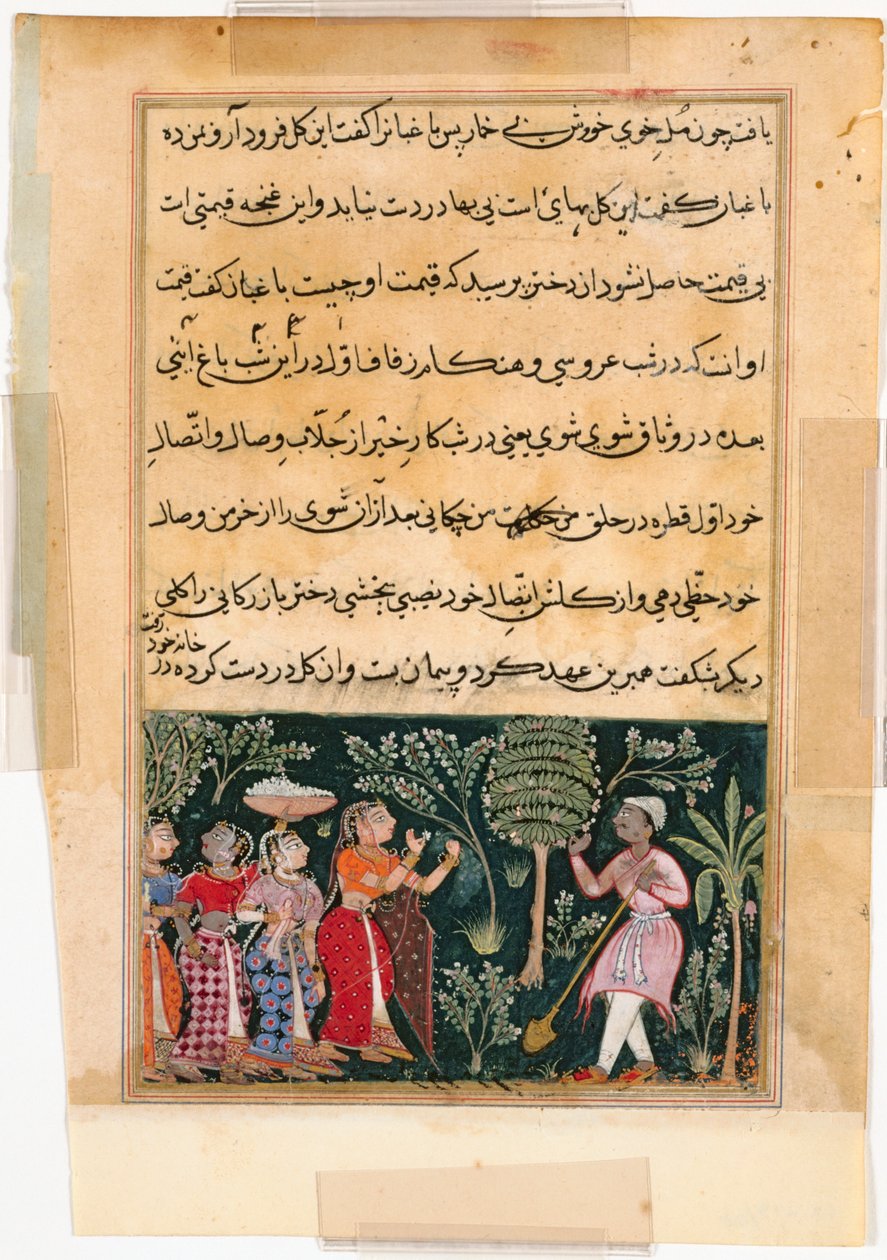 یافت چون مُلِ خوي خووش بے خمار پس باغبانرا کفت این کل فرود آر و بمن ده
باغبان کفت این کل بهایٔ است بی بها در دست نیاید و این غنجه قیمتي است
بی قیمت حاصل نشود ان دختر برسید که قیمت او چیست باغبان کفت قیمت
او انت که در شب عروسي و هنکام زفاف اوّل در این شب باغ ائني
بعده در وثاق شوي شوي یعني در شب کارِ خیر از جُلّابِ وصال و اتّصالِ
خود اوّل قطره در حلق من چکاني بعد از آن شوی را از خرمن وصال
خود حظّي دهي و از کلشن اتّصال خود نصیبي بخشي دختر بازرکاني را کلي
دیکر بشکفت همبرین عهد کرد و پیمان بست وان کل در دست کرده در
خانه خود
رفت